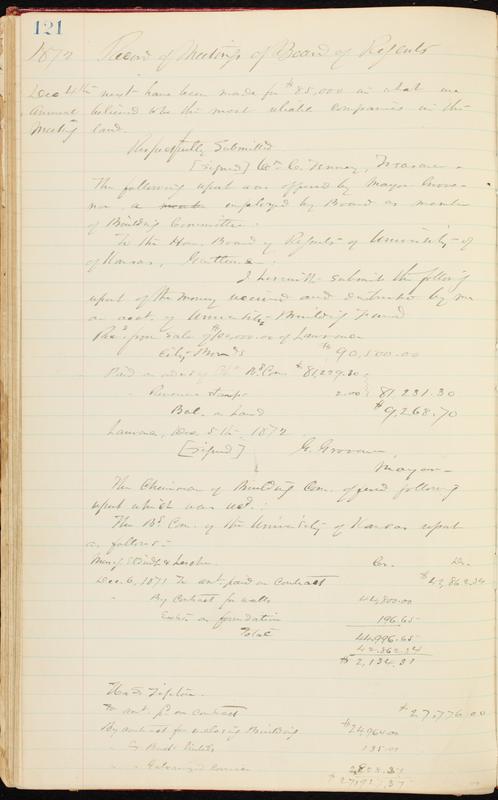 121
1872 Record of Meetings of Board of Regents
Dec 4th Annual Meeting
ment have been made for $85,000 in what we
believed to be the most reliable companies in the
land.
Respectfully Submitted
[Signed] Wm C. Tenney, Treasurer
The following report was offered by Mayor Grove-
nor, a employed by Board as member
of Building Committee.
To the Hon. Board of Regents of University of
of Kansas, Gentlemen.
I herewith submit the following
report of the money received and disbursed by me
on acct. of University Building Fund
Recd from sale of $100,000.00 of Lawrence
City Bonds $90,500.00
Paid on orders of Bd Com. $81,229.30
" Revenue stamps 2.00 81,231.30
Bal. on hand $9,268.70
Lawrence, Dec. 5th 1872
[Signed] G. Grovenor,
Mayor
The Chairman of Building Com. offered following
report which was read:
The Bd Com. of the University of Kansas report
as follows:
Cr. Dr.
Dec. 6, 1871 To amt. paid on Contract $42,862.34
" By Contract for walls 44,800.00
Extra on foundation 196.65
Total 44,996.65
42,862.34
$2,134.31
H. S. Tipton.
To amt. pd on contract $27,776.00
By amt. for enclosing Building $24,964.00
" " Book 135.00
" " Galvanized 2828.37
$27,927.37